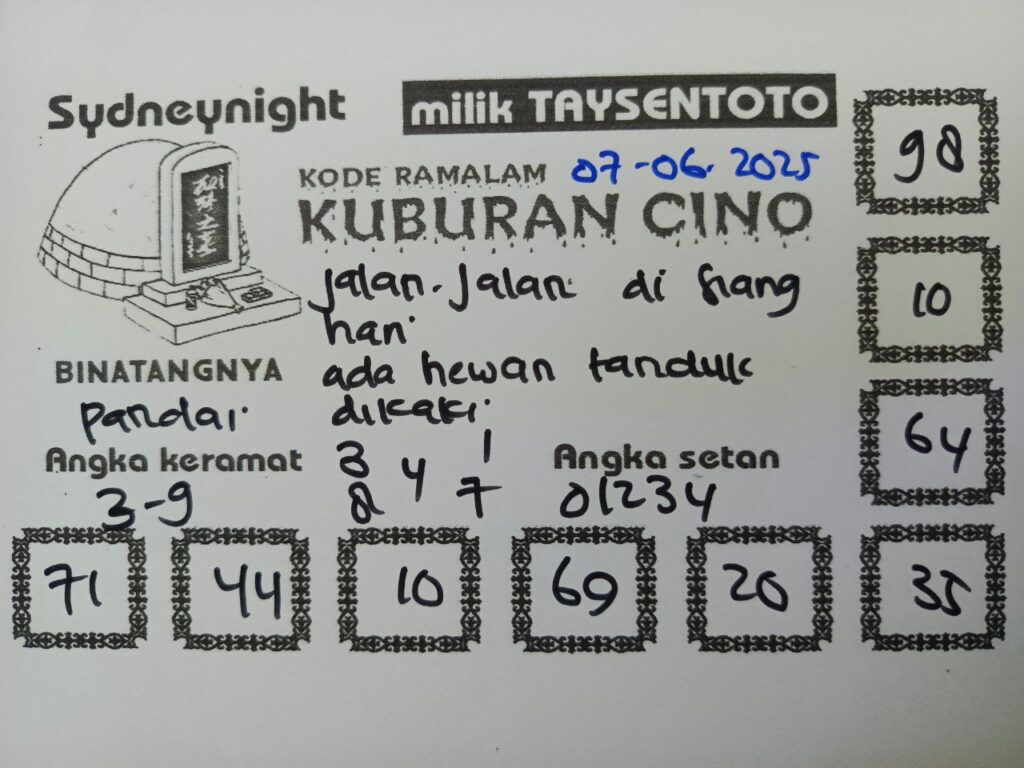 Sydneynight
milik TAYSENTOTO
KODE RAMALAM 07-06.2025
KUBURAN CINO
jalan-jalan di siang
hari
ada hewan tanduk
dikaki
BINATANGNYA
pandai
Angka keramat
3-9
3 4 1
8 7
Angka setan
01234
98
10
64
71 44 10 69 20 35